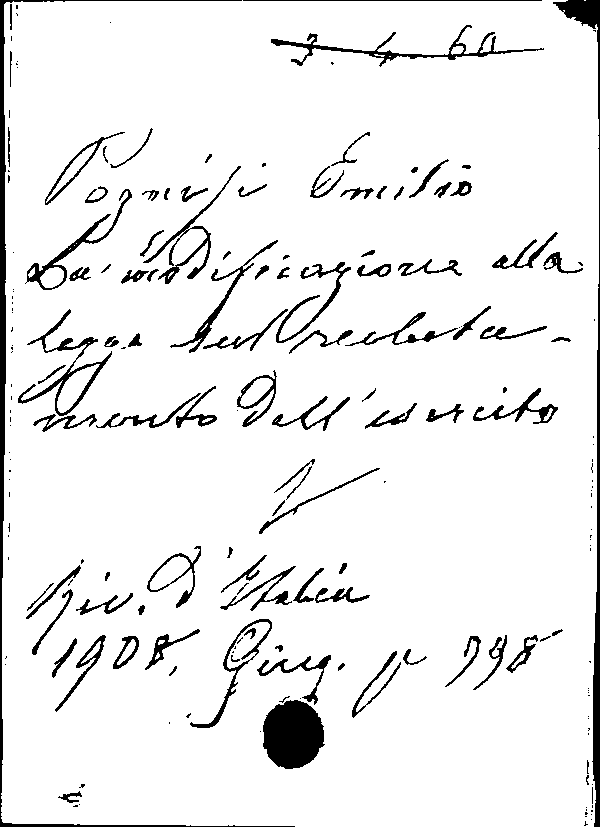 3. 4. 60
Pognisi Emilio
La modificazione alla
legge sul recluta-
mento dell'esercito
Riv. d'Italia
1908, Giug. p 798